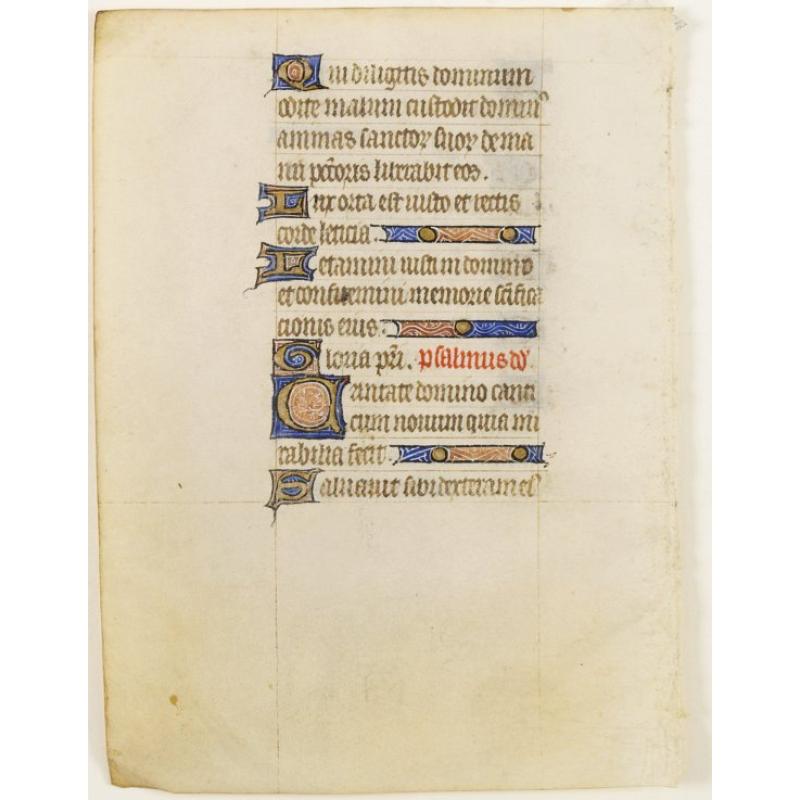 Qui diligitis dominum
odite malum custodit domin⁹
animas sanctoꝝ suoꝝ de ma
nu pctoris liberabit eos.
Lux orta est iusto et rectis
corde leticia.
Letamini iusti in domino
et confitemini memorie scifica
cionis eius.
Gloria pri. psalmus dd
Cantate domino canti
cum nouum quia mi
rabilia fecit.
Saluauit sibi dextera ei⁹